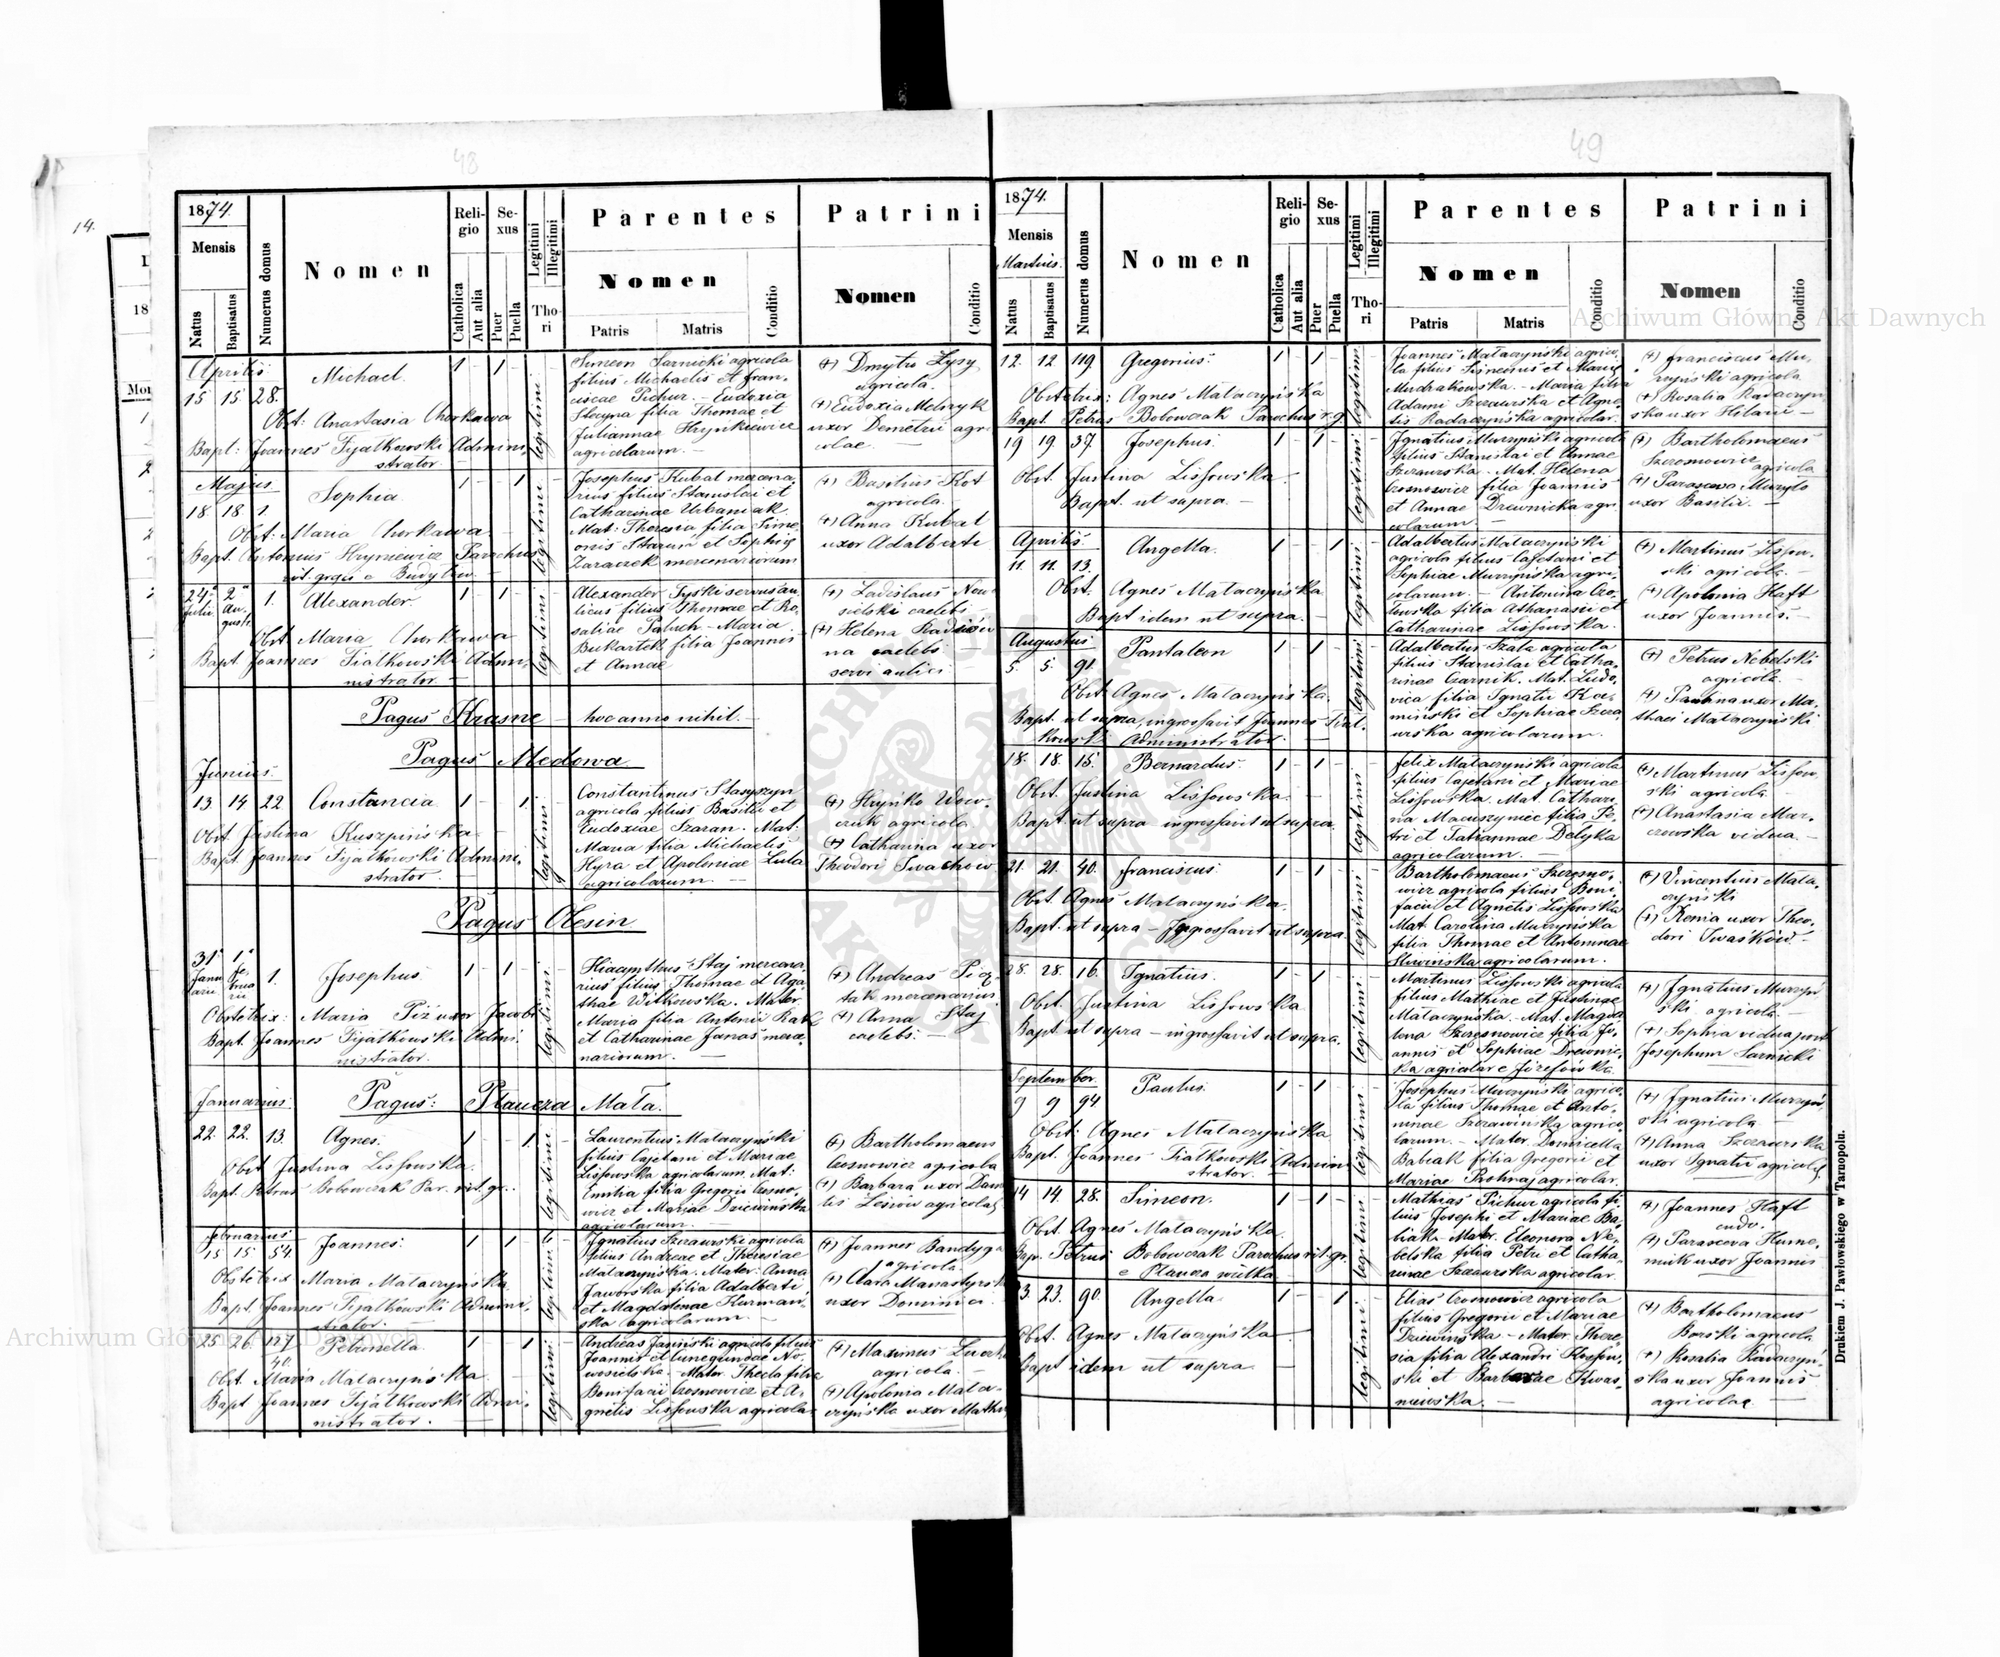 48
1874.
Mensis
Natus
Baptisatus
Numerus domus
Nomen
Religio
Catholica
Aut alia
Sexus
Puer
Puella
Legitimi
Illegitimi
Thori
Parentes
Nomen
Patris
Matris
Conditio
Patrini
Nomen
Conditio
Aprilis
15 15 28. Michael. 1 - 1 - legitimi
Obst: Anastasia Chorkawa
Bapt: Joannes Fijatkowski Admini
strator
Simeon Sarnicki agricola
filius Michaelis et Fran-
ciscae Pichur. - Eudoxia
Stecyna filia Thomae et
Juliannae Hrynkiewicz
agricolarum. -
(+) Dmytro Lysy
agricola.
(+) Eudoxia Melnyk
uxor Demetrii agri-
colae. -
Majus
18 18 1 Sophia 1 - - 1 legitimi
Obst: Maria Chorkawa
Bapt. Antonius Hryniewicz Parochus
rit. graeci e Budylow. -
Josephus Kubat mercena-
rius filius Stanislai et
Catharinae Urbaniak.
Mat: Theresia filia Sime
onis Starun et Sophiae
Zaraczek mercenariorum
(+) Basilius Kot
agricola.
(+) Anna Kubat
uxor Adalberti
24a Julii 2a Augusti 1. Alexander. 1 - 1 - legitimi
Obst Maria Chorkawa
Bapt. Joannes Fialkowski Admi-
nistrator -
Alexander Tyski servus au-
licus filius Thomae et Ro-
saliae Paluch - Maria
Bukartek filia Joannis
et Annae
(+) Ladislaus Now-
sielski caelebs. -
(+) Helena
na caelebs -
servi aulici -
Pagus Krasne hoc anno nihil. -
Pagus Medowa
Junius
13 14 22 Constancia 1 - - 1 legitimi
Obst Justina Kuszpińska
Bapt. Joannes Fijatkowski Admini-
strator -
Constantinus Stasyszyn
agricola filius Basilii et
Eudoxiae Szaran. Mat:
Maria filia Michaelis
Hyra et Apoloniae Lula
agricolarum. -
(+) Hryńko Wow-
czuk agricola
(+) Catharina uxor
Theodori Iwachow
Pagus Olesin
31a Januarii 1a Februarii 1. Josephus 1 - 1 - legitimi
Obstetrix: Maria Piż uxor Jacobi
Bapt. Joannes Fijatkowski Admi-
nistrator.
Hiacynthus Staj mercena-
rius filius Thomae et Aga-
thae Witkowska. Mater
Maria filia Antonii Rak
et Catharinae Janas merce
nariorum. -
(+) Andreas Pię
tak mercenarius
(+) Anna Staj
caelebs. -
Januarius. Pagus: Płaucza Mała.
22. 22. 13. Agnes. 1 - - 1 legitimi
Obst Justina Lissowska.
Bapt. Petrus Bobowczak Par. rit. gr. -
Laurentius Mataczyński
filius Cajetani et Mariae
Lissowska agricolarum Mat:
Emilia filia Gregorii Czosno-
wicz et Mariae Dziewińska
agricolarum. -
(+) Bartholomaeus
Czosnowicz agricola
(+) Barbara uxor Dam
Lesiów agricolae
Februarius
15 15 54. Joannes. 1 - 1 - legitimi
Obstetrix Maria Mataczyńska
Bapt. Joannes Fijatkowski Admini-
strator.
Ignatius Szczaurski agricola
filius Andreae et Theresiae
Mataczyńska. Mater: Anna
Jaworska filia Adalberti
et Magdalenae Hurman-
ska agricolarum. -
(+) Joannes Bandyga
agricola.
(+) Clara Manastyrs
uxor Dominici. -
25 26 127 Petronella. 1 - - 1 legitimi
Obst. Maria Mataczyńska.
Bapt Joannes Fijatkowski Admi-
nistrator.
Andreas Janiski agricola filius
Joannis et Cunegundae No-
wosielska. Mater Thecla filia
Bonifacii Czosnowicz et A-
gnetis Lissowska agricolar
(+) Maximus
agricola. -
(+) Apolonia Mata-
czyńska uxor Mathi
49
1874.
Mensis
Martius.
Natus
Baptisatus
Numerus domus
Nomen
Religio
Catholica
Aut alia
Sexus
Puer
Puella
Legitimi
Illegitimi
Thori
Parentes
Nomen
Patris
Matris
Conditio
Patrini
Nomen
Conditio
12. 12. 119 Gregorius. 1 - 1 - legitimi
Obstetrix: Agnes Mataczyńska
Bapt. Petrus Bobowczak Parochus r. g.
Joannes Mataczyński agrico-
la filius Simeonis et Mariae
Mudrakowska. - Maria filia
Adami Szczaurska et Agne-
tis Radaczyńska agricolar.
(+) Franciscus Mu-
rzyński agricola
(+) Rosalia Radaczyn-
ska uxor Hilarii -
19 19 37. Josephus. 1 - 1 - legitimi
Obst. Justina Lissowska.
Bapt. ut supra. -
Ignatius Murzyński agricola
filius Stanislai et Annae
Szczaurska. Mat. Helena
Czosnowicz filia Joannis
et Annae Drewnicka agri
colarum -
(+) Bartholomaeus
Szczesnowicz agricola
(+) Parasceva
uxor Basilii. -
Aprilis
11. 11. 13. Angella. 1 - - 1 legitimi
Obst. Agnes Mataczyńska
Bapt idem ut supra. -
Adalbertus Mataczyński
agricola filius Cajetani et
Sophiae Murzyńska agri-
colarum. - Antonina Czo-
lowska filia Athanasii et
Catharinae Lissowska.
(+) Martinus Lisow-
ski agricola. -
(+) Apolonia Haft
uxor Joannis. -
Augustus
5. 5 91. Pantaleon 1 - 1 - legitimi
Obst. Agnes Mataczyńska.
Bapt. ut supra, ingrossavit Joannes Fiał-
kowski Administrator. -
Adalbertus Szata agricola
filius Stanislai et Catha-
rinae Czarnik. Mat. Ludo-
vica filia Ignatii Ka-
miński et Sophiae Szcza-
urska agricolarum.
(+) Petrus Nebelski
agricola. -
(+) Paulina uxor Ma-
thaei Mataczyński
18. 18. 15. Bernardus. 1 - 1 - legitimi
Obst. Justina Lissowska.
Bapt. ut supra ingrossavit ut supra.
Felix Mataczyński agricola
filius Cajetani et Mariae
Lissowska. Mat. Cathari-
na Macuszyniec filia Pe-
tri et Tatiannae Delyka
agricolarum. -
(+) Martinus Lissow-
ski agricola -
(+) Anastasia Mar-
czewska vidua. -
21. 21. 40. Franciscus. 1 - 1 - legitimi
Obst. Agnes Mataczyńska.
Bapt. ut supra - Ingrossavit ut supra.
Bartholomaeus Szczesno-
wicz agricola filius Boni-
facii et Agnetis Lissowska
Mat. Carolina Murzyńska
filia Thomae et Antoninae
Sliwinska agricolarum.
(+) Vincentius Mata-
czyński
(+) Xenia uxor Theo-
dori Iwaśków -
28. 28. 16. Ignatius. 1 - 1 - legitimi
Obst. Justina Lissowska
Bapt. ut supra - ingrossavit ut supra.
Martinus Lissowski agricola
filius Mathiae et Justinae
Mataczyńska - Mat. Magda
lena Szczesnowicz filia Jo-
annis et Sophiae Drewnic-
ka agricolar e Józefówka.
(+) Ignatius Murzyń
ski agricola. -
(+) Sophia vidua post
Josephum Sarnicki
September.
9 9 94. Paulus. 1 - 1 - legitimi
Obst: Agnes Mataczyńska
Bapt. Joannes Fiatkowski Admini
strator. -
Josephus Murzyński agrico-
la filius Thomae et Anto-
ninae Szczawińska agrico
larum. - Mater Domicella
Babiak filia Gregorii et
Mariae Pastnaj agricolar.
(+) Ignatius Murzyń
ski agricola -
(+) Anna Szczaurska
uxor Ignatii agricolae
14 14. 28. Simeon. 1 - 1 - legitimi
Obst. Agnes Mataczyńska
Bap. Petrus Bobowczak Parochus rit. gr.
e Płaucza wielka.
Mathias Pichur agricola fi
lius Josephi et Mariae Ba-
biak. Mater. Eleonora Ne-
belska filia Petri et Catha-
rinae Szczaurska agricolar.
(+) Joannes Haft
(+) Parasceva Hume-
niuk uxor Joannis
23. 23. 90. Angella. 1 - - 1 legitimi
Obst. Agnes Mataczyńska -
Bapt idem ut supra. -
Elias Czosnowicz agricola
filius Gregorii et Mariae
Dziewinska - Mater There-
sia filia Alexandri Kossow-
ski et Barbarae Kwas-
niewska. -
(+) Bartholomaeus
Borski agricola
(+) Rosalia Radaczyń-
ska uxor Joannis
agricolae. -
Drukiem J. Pawłowskiego w Tarnopolu.
Archiwum Główne Akt Dawnych
Archiwum Główne Akt Dawnych